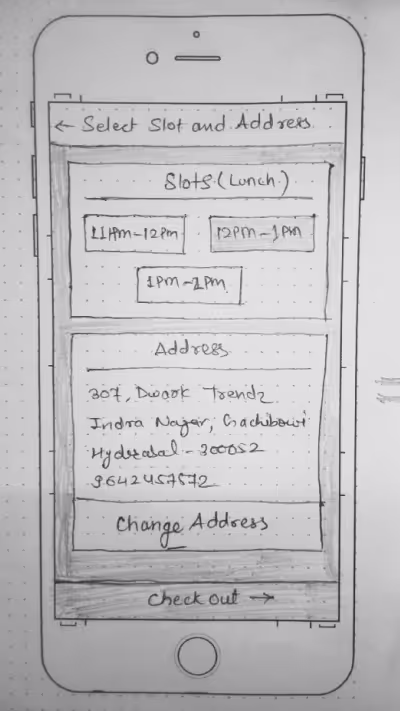 ← Select Slot and Address
Slots (Lunch)
11AM-12PM
12PM-1PM
1PM-2PM
Address
307, Dwark Trendz
Indra Nagar, Gachibowi
Hyderabal - 300052
9642457572
Change Address
Check out →